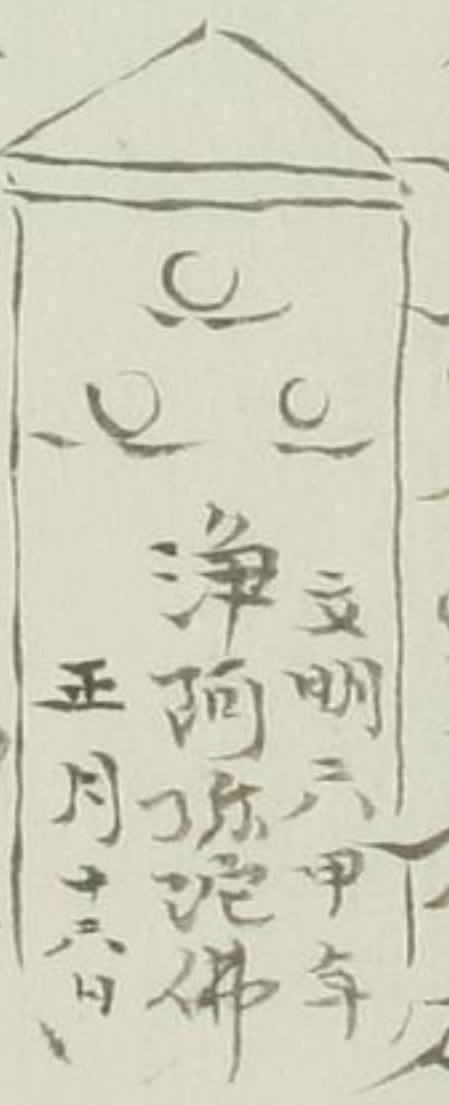 文明六甲午
浄阿弥陀佛
正月十六日